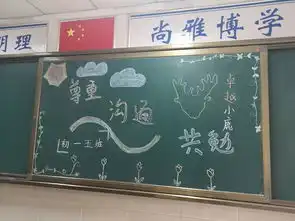 明理
尚雅博学
尊重
沟通
卓越小鹿
共勉
初一五班